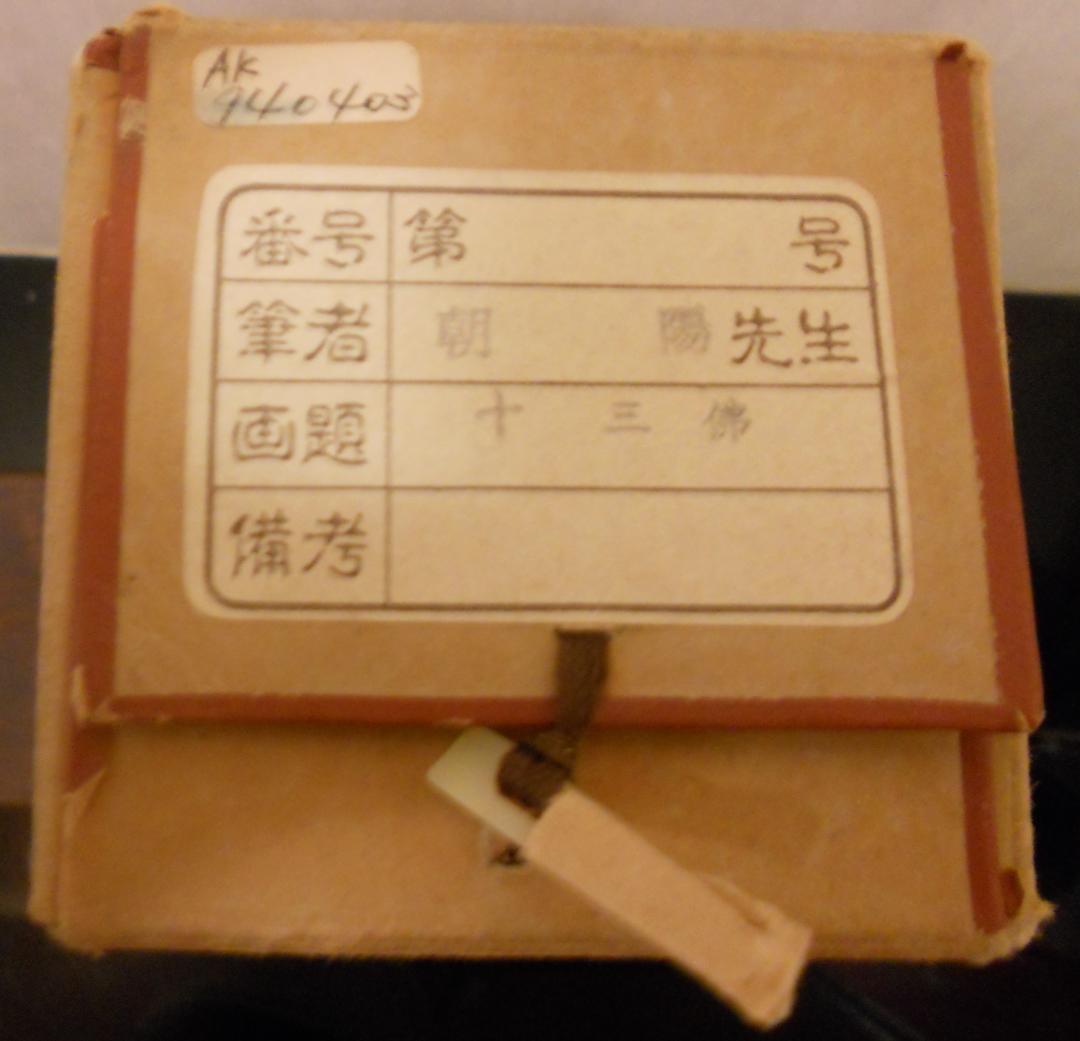 AK
940403
番号 第 号
筆者 朝 陽 先生
画題 十 三 佛
備考